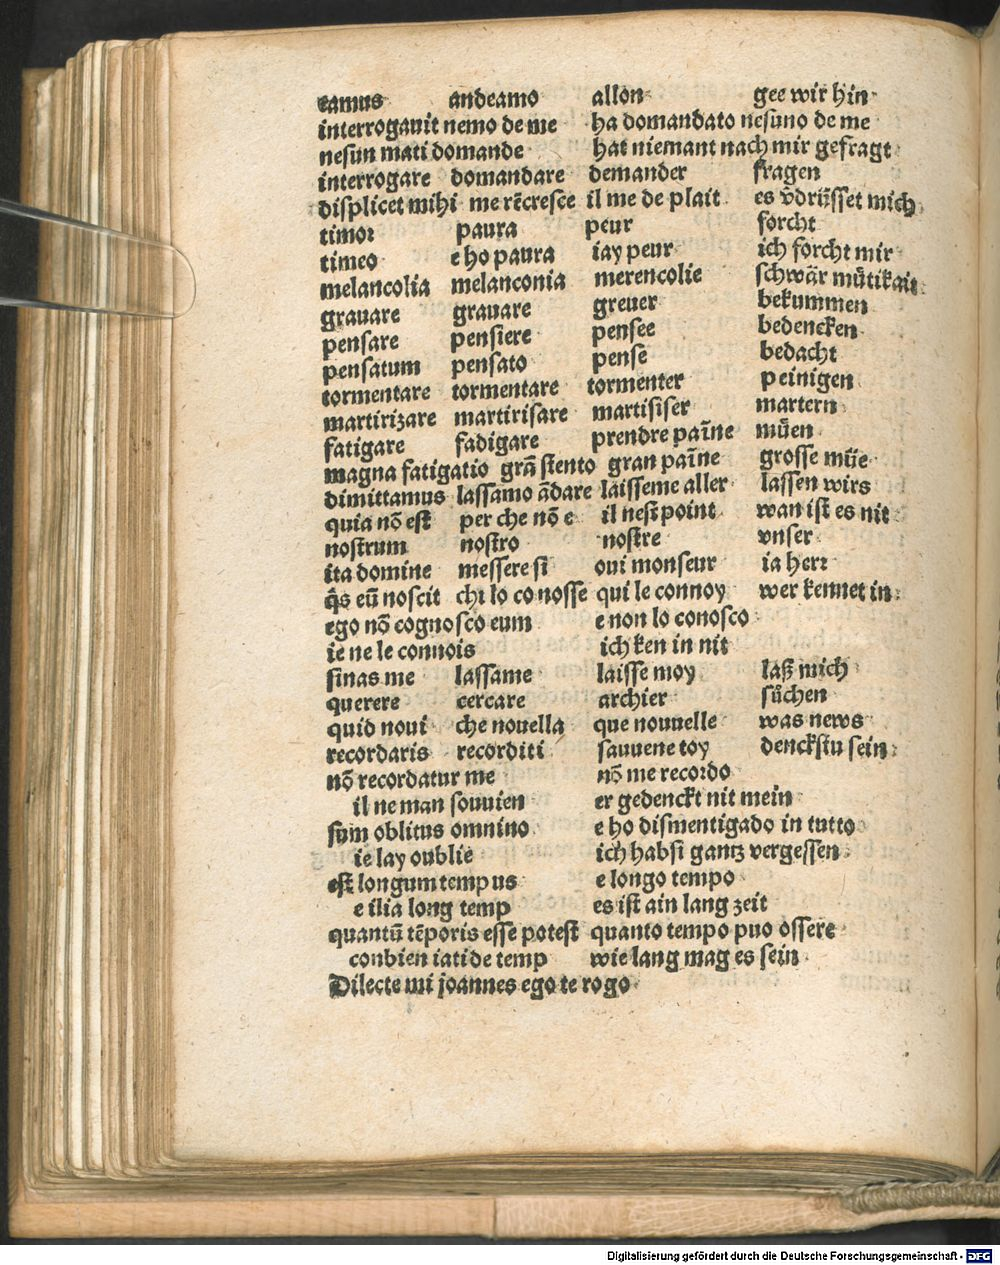 eamus andeamo allon gee wir hin
interrogauit nemo de me ha domandato nesuno de me
nesun mati domande hat niemant nach mir gefragt
interrogare domandare demander fragen
displicet mihi me rēcresce il me de plait es v̄drüsset mich
timor paura peur forcht
timeo e ho paura iay peur ich forcht mir
melancolia melanconia merencolie schwär mütikait
grauare grauare greuer bekummen
pensare pensiere pensee bedencken
pensatum pensato pense bedacht
tormentare tormentare tormenter peinigen
martirizare martirisare martisiser martern
fatigare fadigare prendre paīne müen
magna fatigatio grā stento gran paīne grosse müe
dimittamus lassamo ādare laisseme aller lassen wirs
quia nō est per che nō e il nest point wan ist es nit
nostrum nostro nostre vnser
ita domine messere si oui monseur ia herr
q̄s eū noscit chi lo co nosse qui le connoy wer kennet in
ego nō cognosco eum e non lo conosco
ie ne le connois ich ken in nit
sinas me lassame laisse moy laß mich
querere cercare archier suͦchen
quid noui che nouella que nouuelle was news
recordaris recorditi sauuene toy denckstu sein
nō recordatur me nō me recordo
il ne man souuien er gedenckt nit mein
sum oblitus omnino e ho dismentigado in tutto
ie lay oublie ich habsi gantz vergessen
est longum temp us e longo tempo
e ilia long temp es ist ain lang zeit
quantū tēporis esse potest quanto tempo puo össere
conbien iati de temp wie lang mag es sein
Dilecte mi joannes ego te rogo
Digitalisierung gefördert durch die Deutsche Forschungsgemeinschaft - DFG